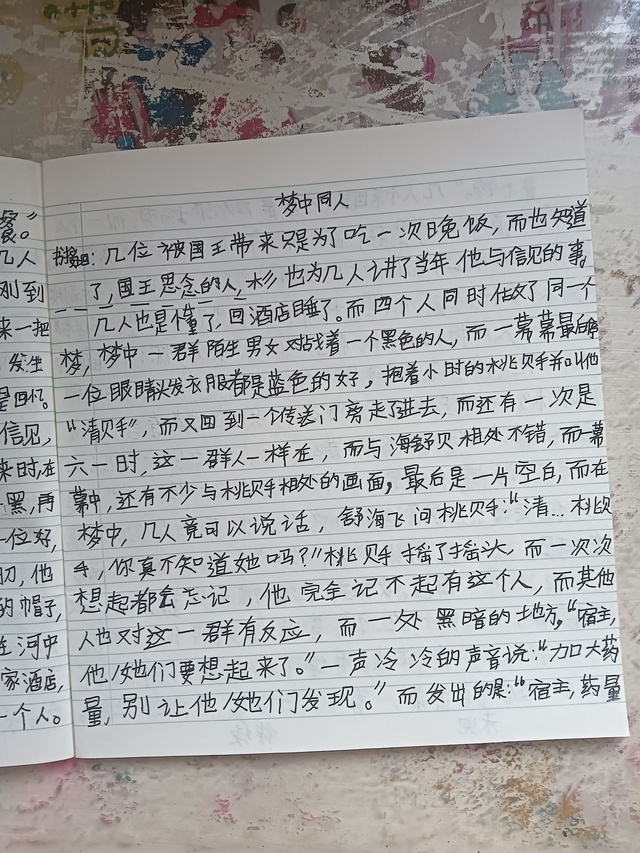 餐。”
几人
刚到
来一把
发生
是回忆。
信见，
来时，在
黑，再
一位好，
刀，他
的帽子，
在河中
家酒店，
一个人。
梦中同人
书接如回：几位被国王带来只是为了吃一次晚饭，而也知道
了，国王思念的人，杉也为几人讲了当年他与信见的事。
几人也是懂了，回酒店睡了。而四个人同时做了同一个
梦，梦中一群陌生男女对战着一个黑色的人，而一幕幕最后
一位眼睛头发衣服都是蓝色的好，抱着小时的桃贝手并叫他
“清贝手”，而又回到一个传送门旁走了进去，而还有一次是
六一时，这一群人一样在，而与海舒贝相处不错，而一幕
幕中，还有不少与桃贝手相处的画面，最后是一片空白，而在
梦中，几人竟可以说话，舒海飞问桃贝手：“清…桃贝
手，你真不知道她吗？”桃贝手摇了摇头，而一次次
想起都会忘记，他完全记不起有这个人，而其他
人也对这一群有反应，而一处黑暗的地方，“宿主，
他/她们要想起来了。”一声冷冷的声音说：“加大药
量，别让他/她们发现。”而发出的是：“宿主，药量